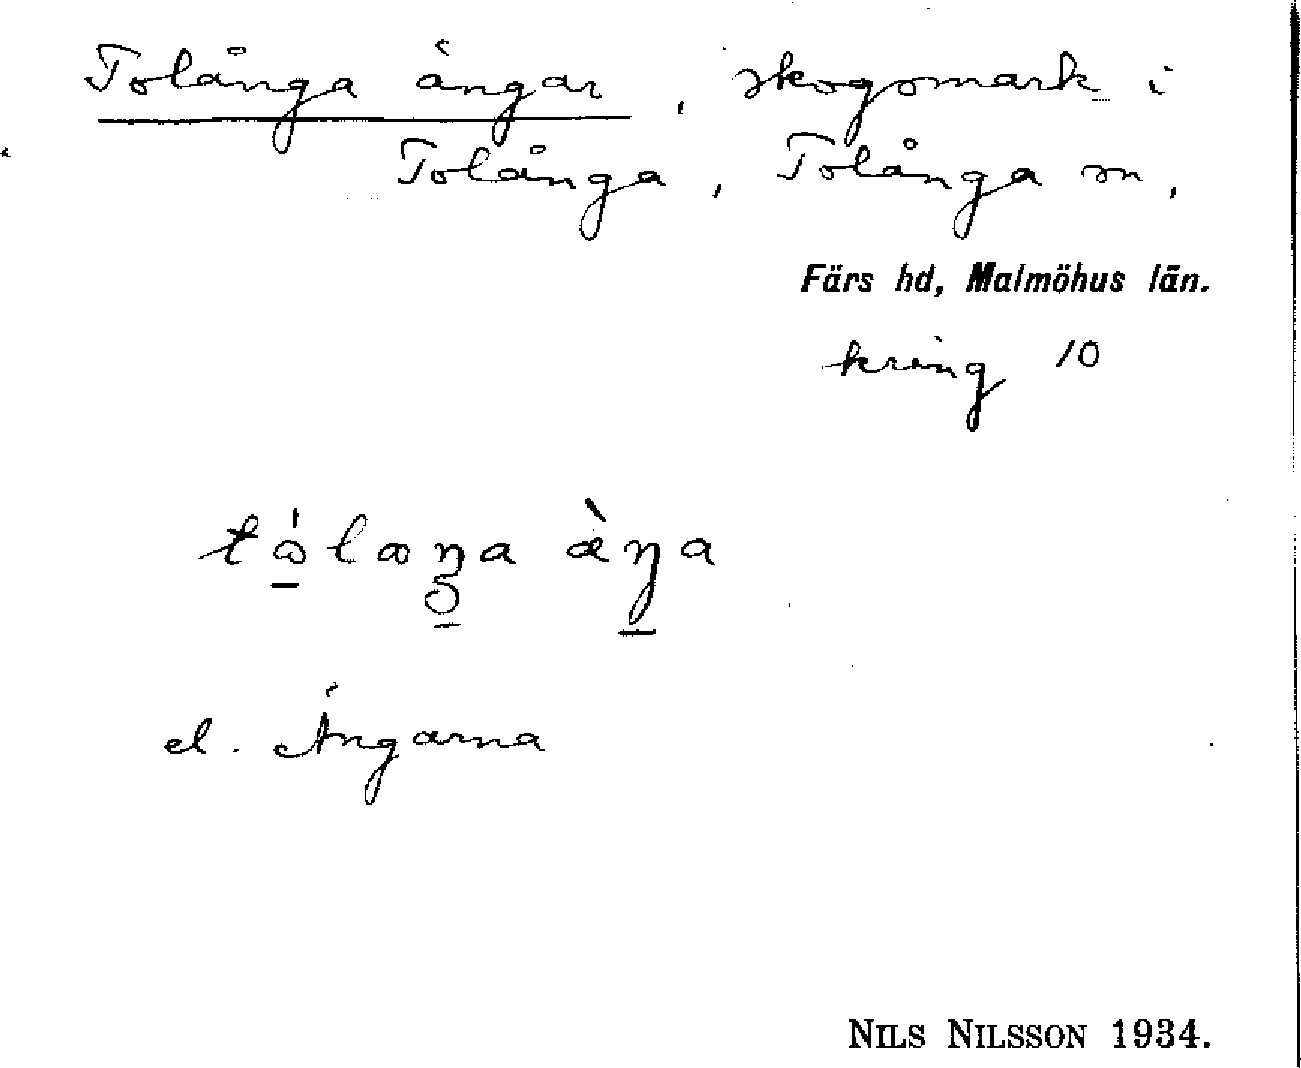 Tolånga ängar, skogsmark i
Tolånga, Tolånga sn,
Färs hd, Malmöhus län.
kring 10
el. Ängarna
NILS NILSSON 1934.